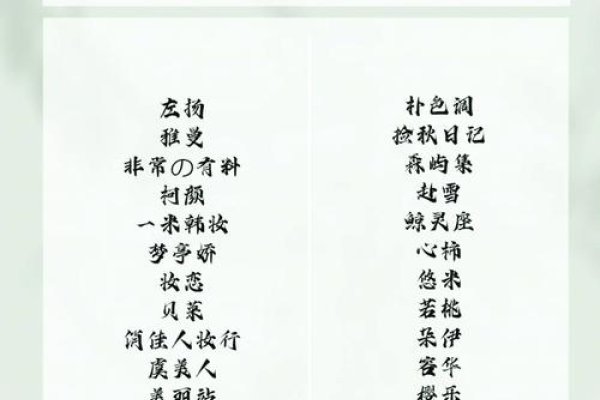 左扬
雅曼
非常の有料
柯颜
一米韩妆
梦亭娇
妆恋
贝莱
俏佳人妆行
虞美人
美丽站
朴色调
捡秋日记
森屿集
赴雪
鲸灵座
心柿
悠米
若桃
朵伊
容华
樱乐